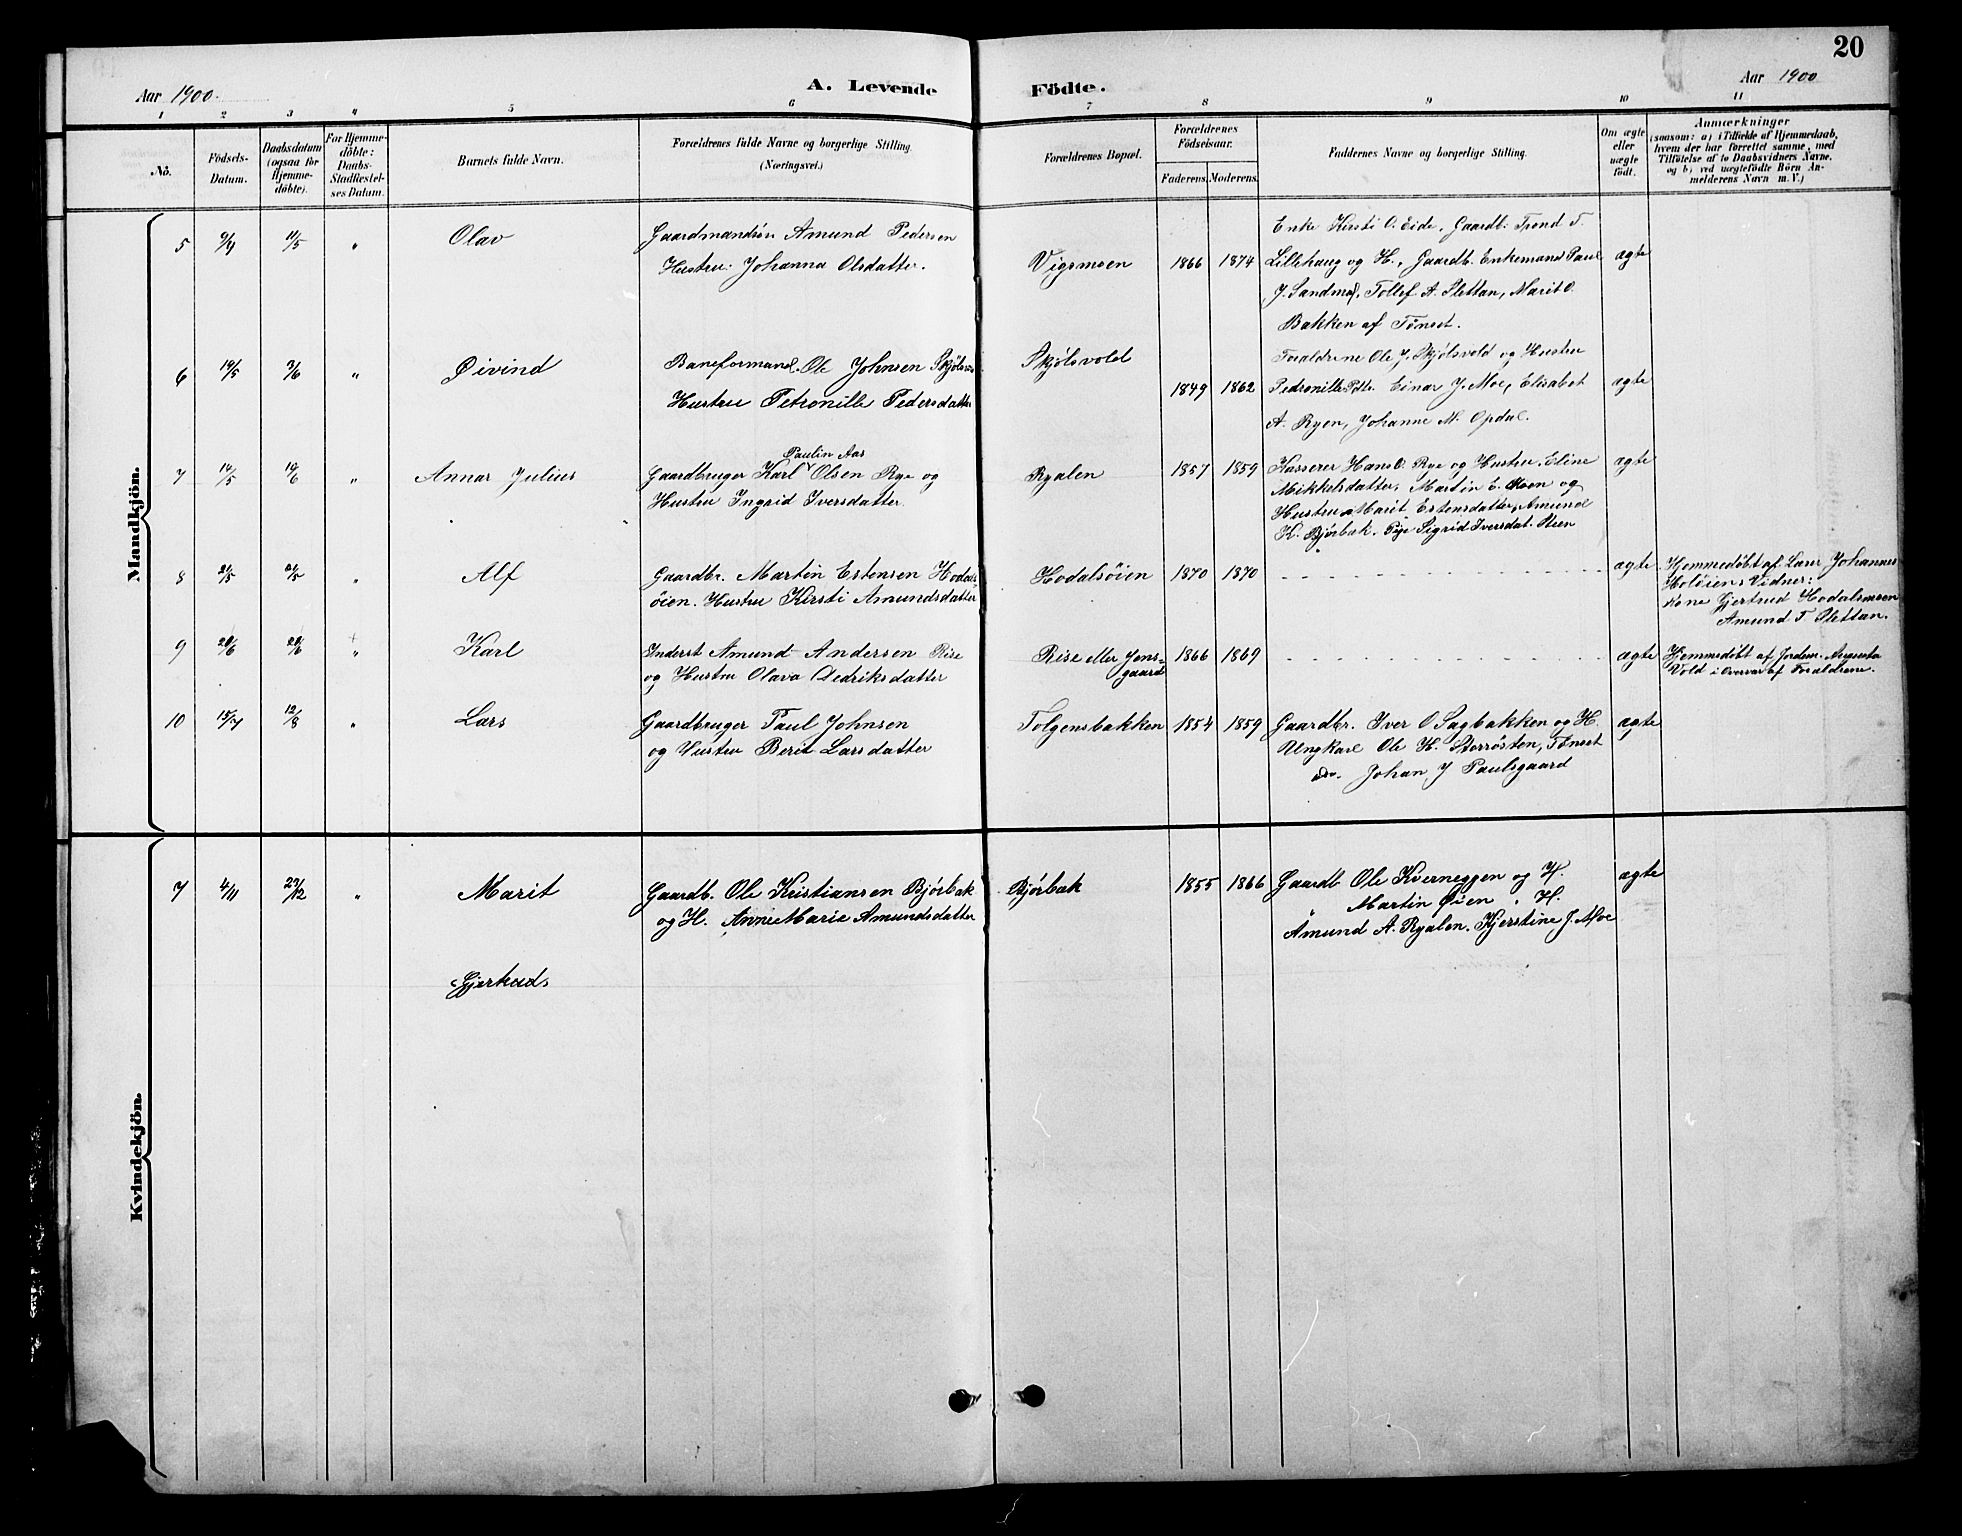 20
Aar 1900.
A. Levende Födte.
Aar 1900
1 2 3 4 5 6 7 8 9 10 11
No.
Födsels-
Datum.
Daabsdatum
(ogsaa for
Hjemme-
döbte).
For Hjemme-
döbte:
Daabs-
Stadfæstel-
ses Datum.
Barnets fulde Navn.
Forældrenes fulde Navne og borgerlige Stilling.
(Næringsvei.)
Forældrenes Bopæl.
Forældrenes
Födselsaar.
Faderens. Moderens.
Faddernes Navne og borgerlige Stilling.
Om ægte
eller
uægte
födt.
Anmærkninger
(saasom: a) i Tilfælde af Hjemmedaab,
hvem der har forrettet samme, med
Tilföielse af to Daabsvidners Navne,
og b) ved uægtefödte Börn An-
melderens Navn m. V.)
Mandkjön.
5 9/4 11/5 " Olav
Gaardmandsön Amund Pedersen
Hustru: Johanna Olsdatter.
Vigsmoen 1866 1874
Enke Kirsti O. Eide, Gaardb. Trond T.
Lillehaug og H., Gaardb. Enkemand Paul
J. Sandmæl, Tollef A. Plettan, Marit O.
Bakken af Tönset.
ægte
6 19/5 3/6 " Öivind
Baneformand Ole Johnsen Skjölsvold
Hustru Petronille Pedersdatter
Skjölsvold
1849 1862
Forældrene Ole J. Skjölsvold og Hustru
Pedronille Pdtr. Einar J. Moe, Elisabet
A. Ryen, Johanne M. Opdal.
ægte
7 14/5 10/6 " Annar Julius
Paulin Aas
Gaardbruger Karl Olsen Rye og
Hustru Ingrid Iversdatter.
Ryalen 1857 1859
Kasserer Hans O. Rye og Hustru Eline
Mikkelsdatter, Martin E. Moen og
Hustru Marit Estensdatter, Amund
K. Björbak. Pige Sigrid Iversdat. Steen
ægte
8 21/5 21/5 " Alf
Gaardbr. Martin Estensen Hodals
öien. Hustru Kirsti Amundsdatter
Hodalsöien 1870 1870
ægte
Hjemmedöbt af Lærer Johannes
Holöien. Vidner:
Kone Gjertrud Hodalsmoen
Amund T. Plettan.
9 28/6 28/6 " Karl
Inderst Amund Andersen Rise
og Hustru Olava Dedriksdatter
Rise eller Jens-
gaard
1866 1869
ægte
Hjemmedöbt af Jordem. Augusta
Vold i Overvær af Forældrene.
10 15/7 12/8 " Lars
Gaardbruger Paul Johnsen
og Hustru Berit Larsdatter
Tolgensbakken 1854 1859
Gaardbr. Iver O Sagbakken og H.
Ungkarl Ole H. Storrösten, Tönset
do. Johan J Paulsgaard
ægte
Kvindekjön.
7 4/11 23/12 " Marit
Gaardb. Ole Kristiansen Björbak
og H. Anne Marie Amundsdatter
Björbak 1855 1866
Gaardb Ole Kverneggen og H.
Martin Öien . H.
Amund A. Ryalen. Kjerstine J. Moe
ægte
Gjertrud